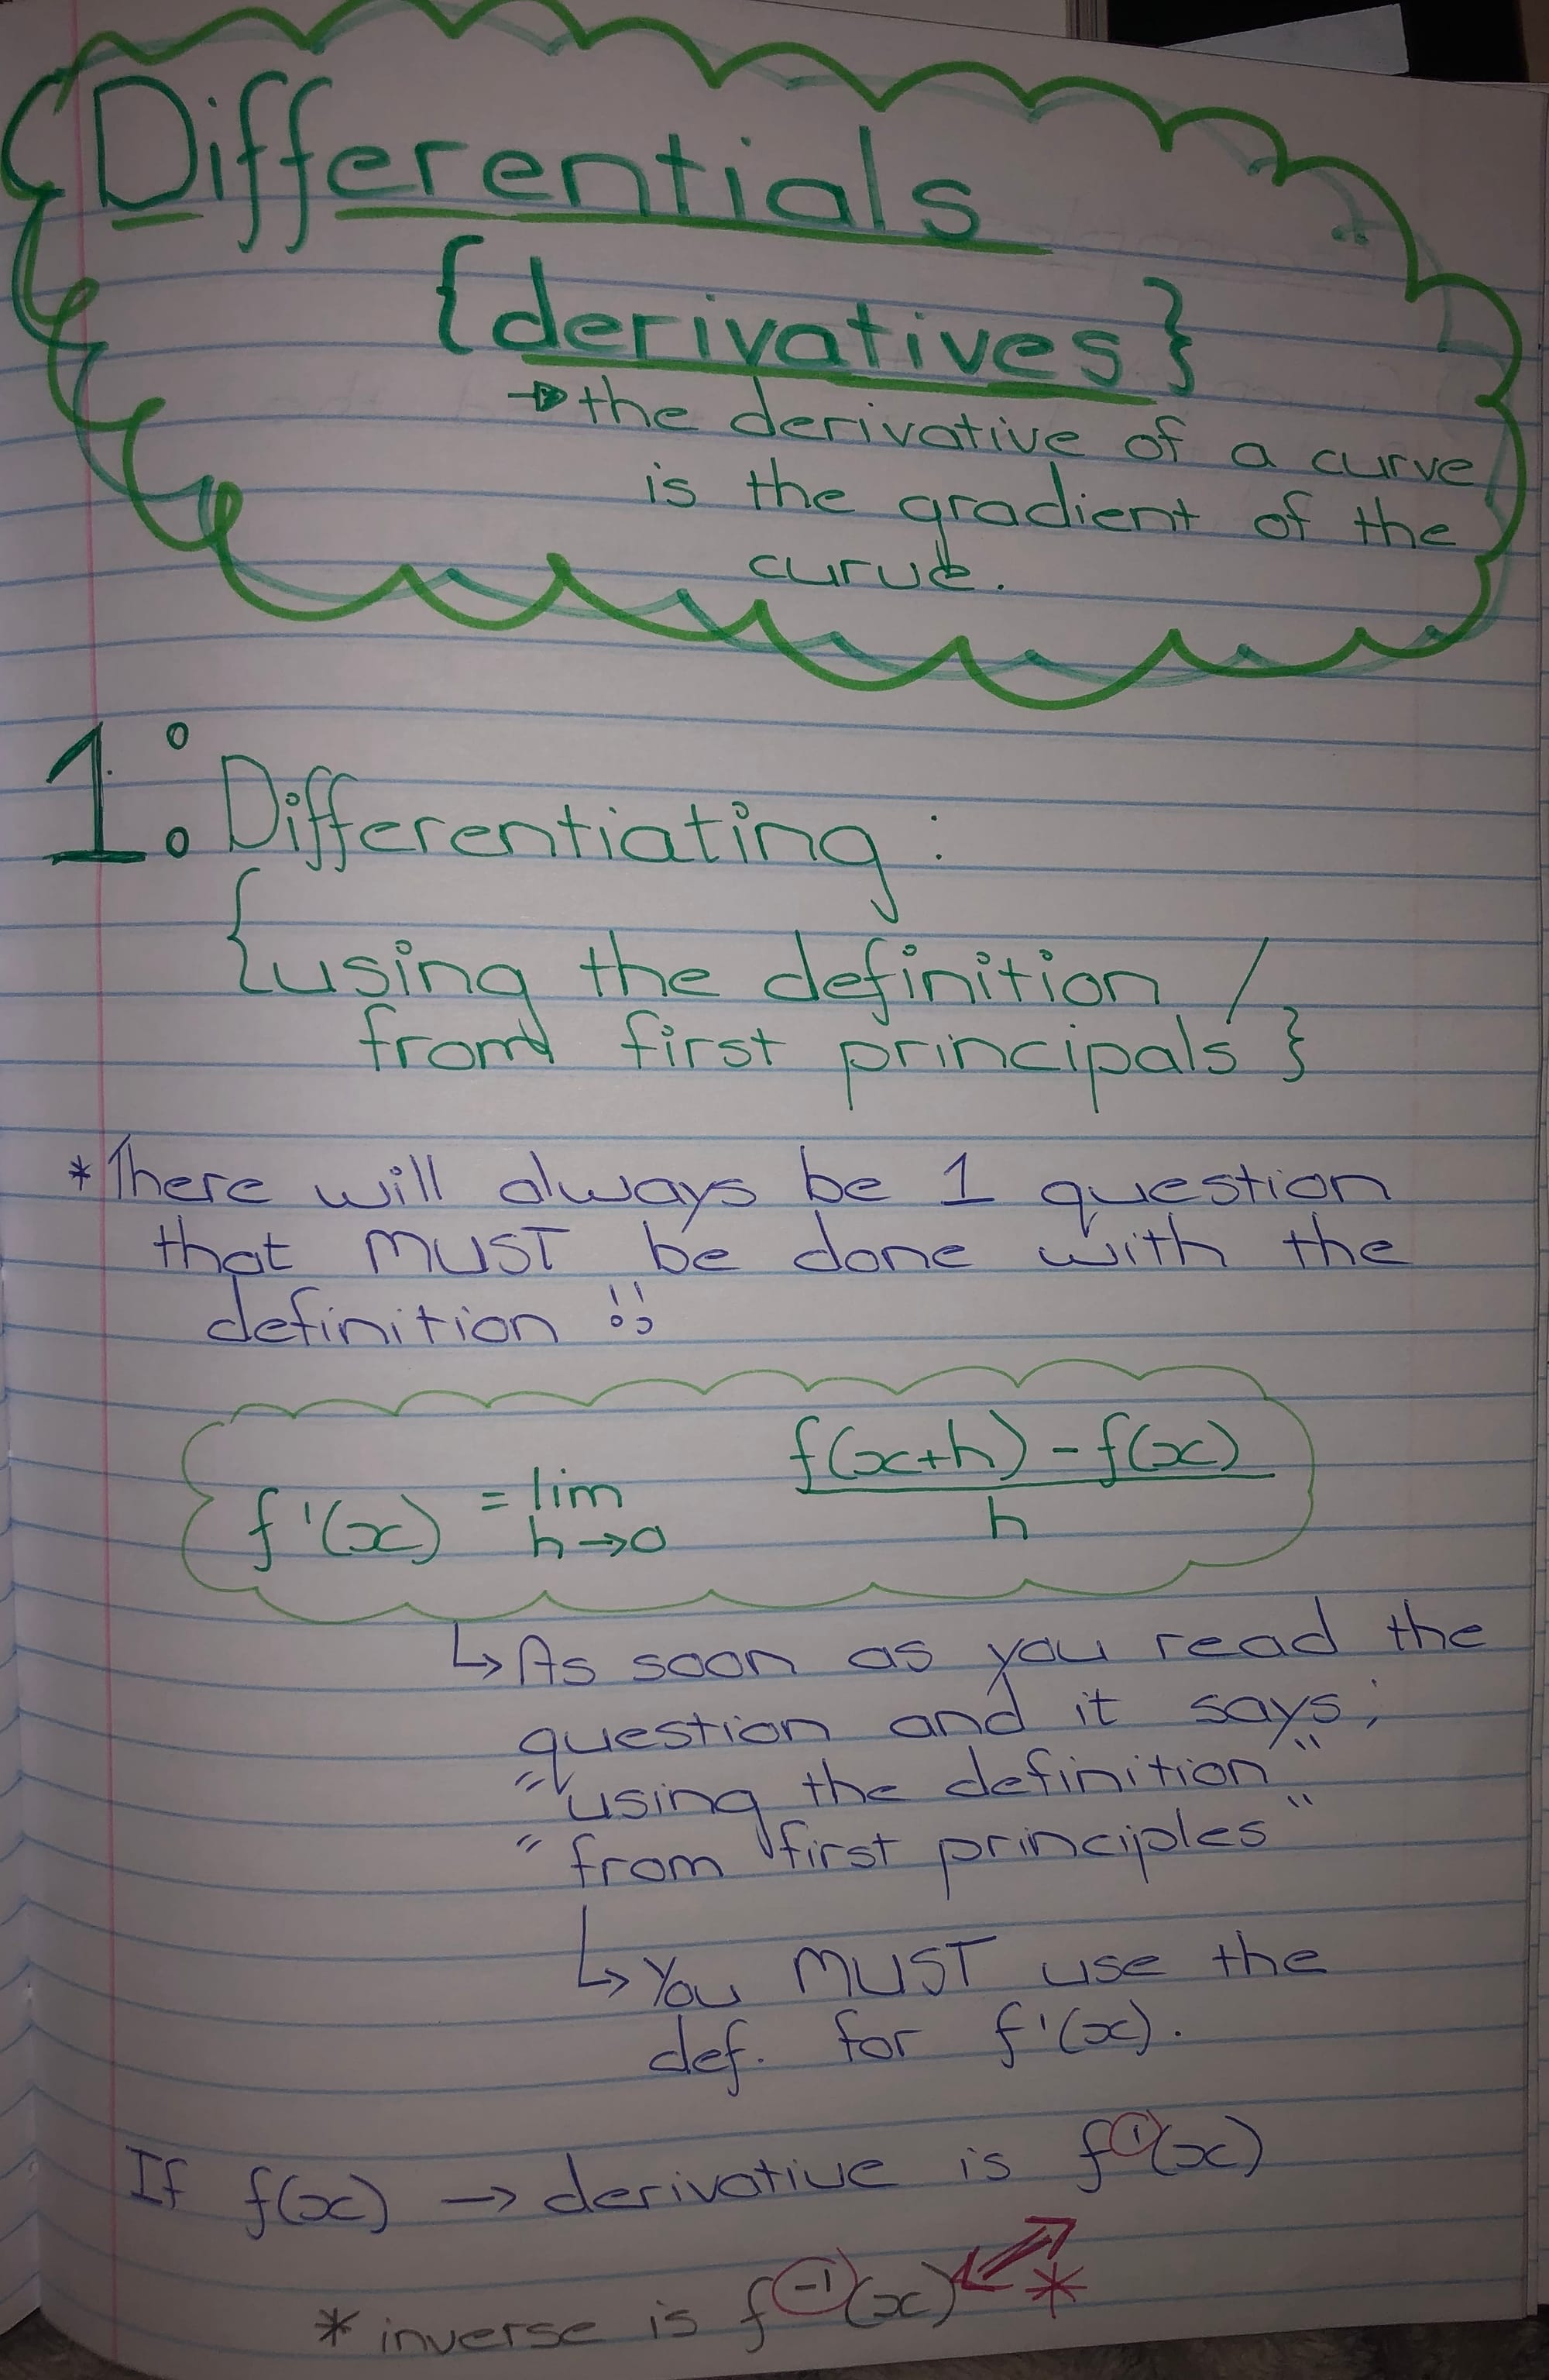 Differentials
{derivatives}
→ the derivative of a curve
is the gradient of the
curve.
1: Differentiating :
{using the definition /
from first principals}
* There will always be 1 question
that MUST be done with the
definition !!
f'(x) = lim h→0 f(x+h) - f(x) / h
↳ As soon as you read the
question and it says;
"using the definition"
"from first principles"
↳ You MUST use the
def. for f'(x).
If f(x) → derivative is f'(x)
*
* inverse is f⁻¹(x)